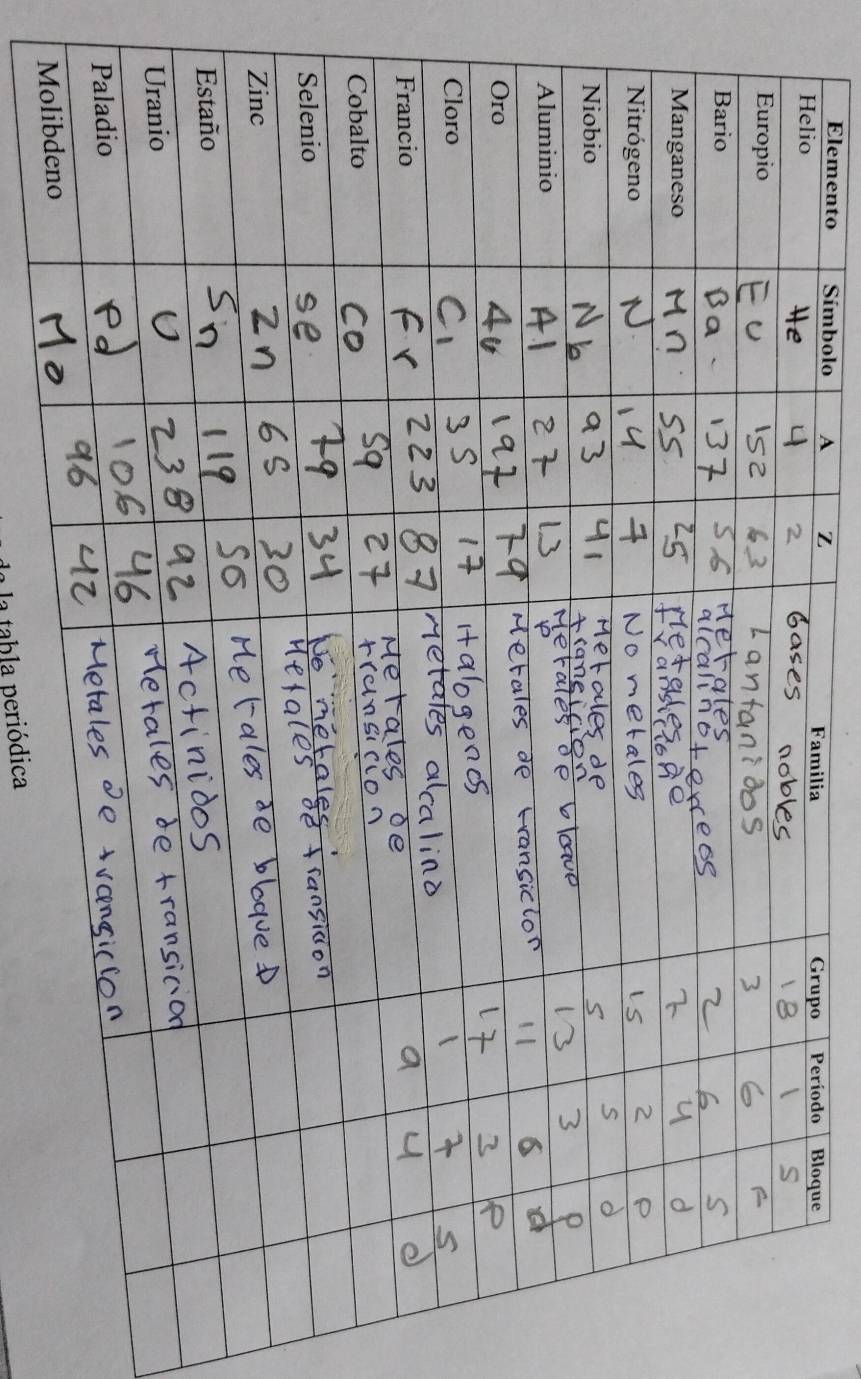 Elemento Símbolo A Z Familia Grupo Período Bloque
Helio He 4 2 Gases nobles 18 1 S
Europio Eu 152 63 Lantanidos 3 6 F
Bario Ba 137 56 Metales alcalinoterreos 2 6 S
Manganeso Mn 55 25 Metales de transicion 7 4 d
Nitrógeno N 14 7 No metales 15 2 P
Niobio Nb 93 41 Metales de transicion 5 5 d
Aluminio Al 27 13 Metales de bloque P 13 3 P
Oro Au 197 79 Metales de transicion 11 6 d
Cloro Cl 35 17 Halogenos 17 3 P
Francio Fr 223 87 Metales alcalino 1 7 S
Cobalto Co 59 27 Metales de transicion 9 4 d
Selenio Se 79 34 No metales
Zinc Zn 65 30 Metales de transicion
Estaño Sn 119 50 Metales de bloque P
Uranio U 238 92 Actinidos
Paladio Pd 106 46 Metales de transicion
Molibdeno Mo 96 42 Metales de transicion
de la tabla periódica